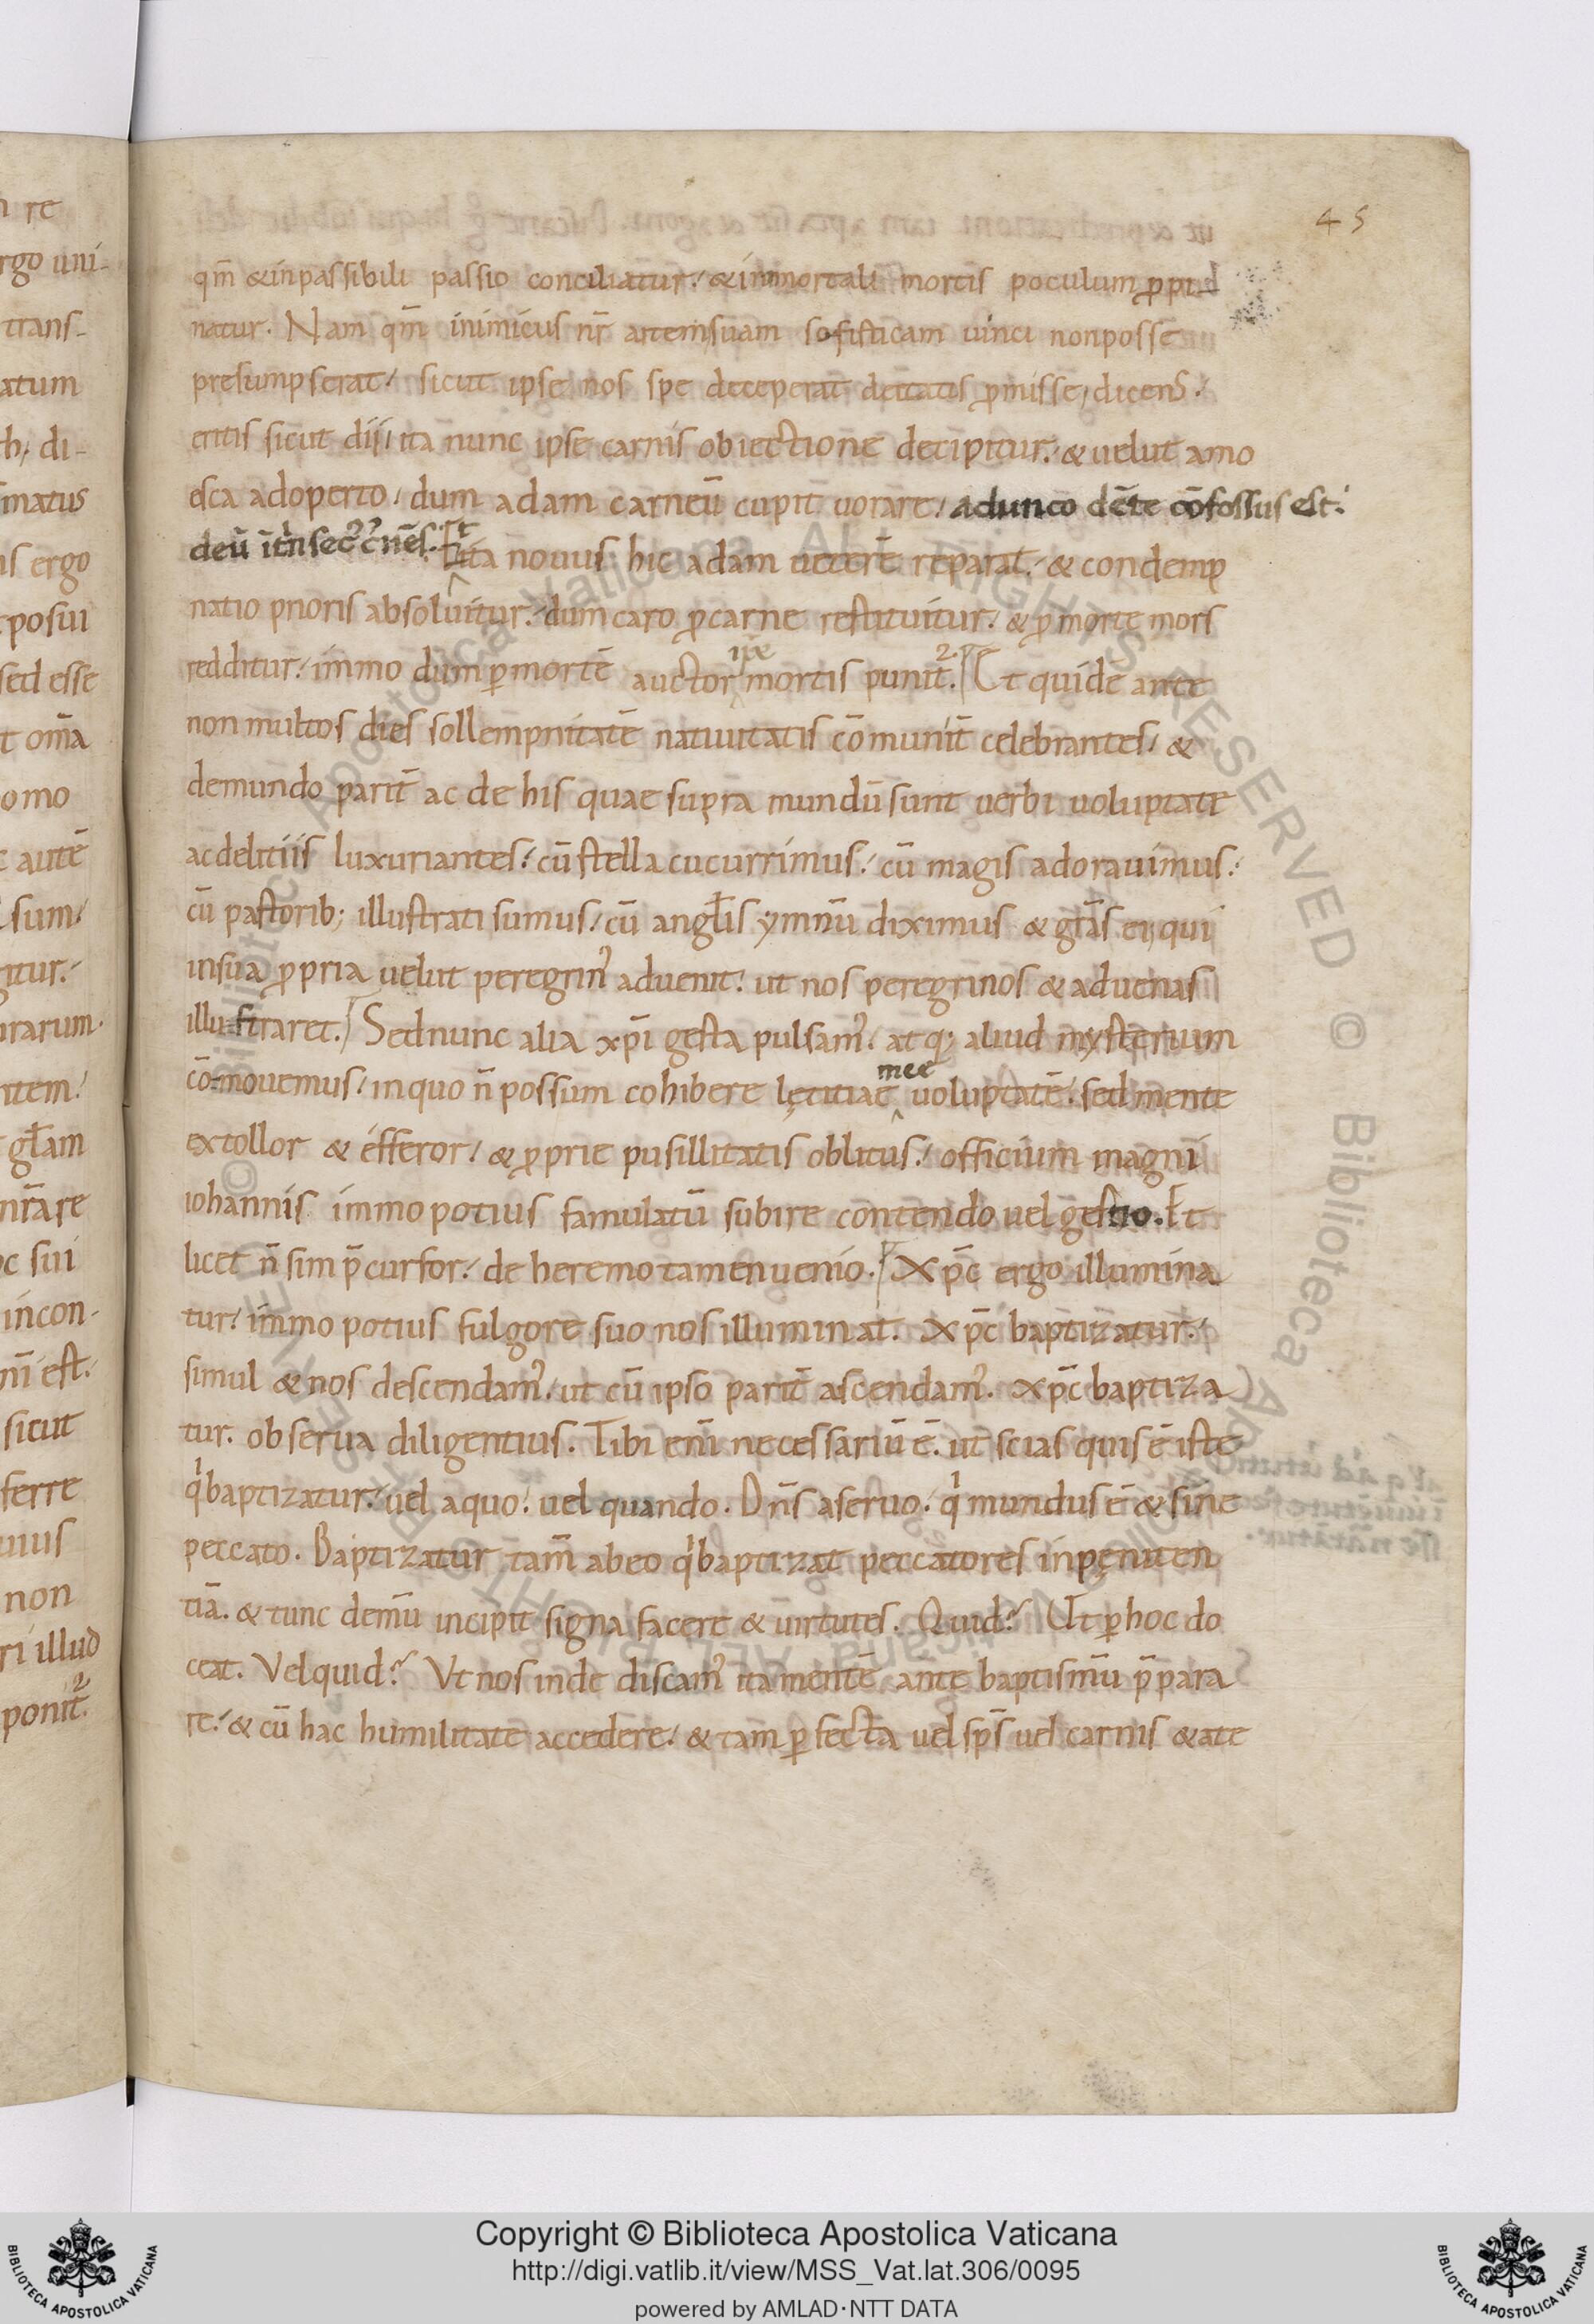 45
n re
rgo uni-
trans-
atum
h. di-
matus
is ergo
posui
sed esse
t om̄a
omo
c autē
sum
gitur.
urarum.
ntem
gl̄am
nr̄a re
c sui
incon-
ni est.
sicut
ferre
uius
non
ri illud
ponit̄.
qm̄ & inpassibili passio conciliatur. & immortali mortis poculum ꝓpi
natur. Nam qm̄ inimicus nr̄ artem suam sofisticam uinci non posse
presumpserat, sicut ipse nos spe deceperat deitatis ꝓmisse, dicens.
eritis sicut dii, ita nunc ipse carnis obiectione decipitur. & uelut amo
esca adoperto, dum adam carneū cupit uorare, adunco dēte cōfossus est.
deū Et
ita nouus hic adam uecerē reparat. & condemp
natio prioris absoluitur. dum caro ꝓ carne restituitur. & ꝓ morte mors
redditur. immo dum ꝑ mortē auctor mortis punit̄. Et quidē ante
non multos dies sollempnitatē natiuitatis cōmunit̄ celebrantes, &
de mundo parit̄ ac de his quae supra mundū sunt uerbi uoluptate
ac delitiis luxuriantes. cū stella cucurrimus. cū magis adorauimus.
cū pastorib; illustrati sumus. cū angl̄is ymnū diximus & gr̄as ei, qui
in sua ꝓpria uelut peregrin᾽ aduenit. ut nos peregrinos & aduenas
illustraret. Sed nunc alia xp̄i gesta pulsam᾽. atq; aliud mysterium
cō-mouemus. in quo n̄ possum cohibere lętitiae meę uoluptatē. sed mente
extollor & efferor. & ꝓprie pusillitatis oblitus. officium magni
iohannis immo potius famulatū subire contendo uel gestio. Et
licet n̄ sim p̄cursor. de heremo tamen uenio. Xp̄c ergo illumina
tur. immo potius fulgore suo nos illuminat. Xp̄c baptizatur.
simul & nos descendam᾽. ut cū ipso parit̄ ascendam᾽. Xp̄c baptiza
tur. obserua diligentius. Tibi enī necessariū ē. ut scias quis ē iste
qͥ baptizatur. uel a quo. uel quando. Dn̄s a seruo. qͥ mundus ē & sine
peccato. Baptizatur tam̄ ab eo qͥ baptizat peccatores in pęniten
tiā. & tunc demū incipit signa facere & uirtutes. Quid? Ut ꝑ hoc do
ceat. Vel quid? Vt nos inde discam᾽ ita mentē ante baptismū p̄para
re. & cū hac humilitate accedere. & tam ꝑfecta uel sp̄s uel carnis & ate
Copyright © Biblioteca Apostolica Vaticana
http://digi.vatlib.it/view/MSS_Vat.lat.306/0095
powered by AMLAD·NTT DATA
BIBLIOTECA APOSTOLICA VATICANA
BIBLIOTECA APOSTOLICA VATICANA